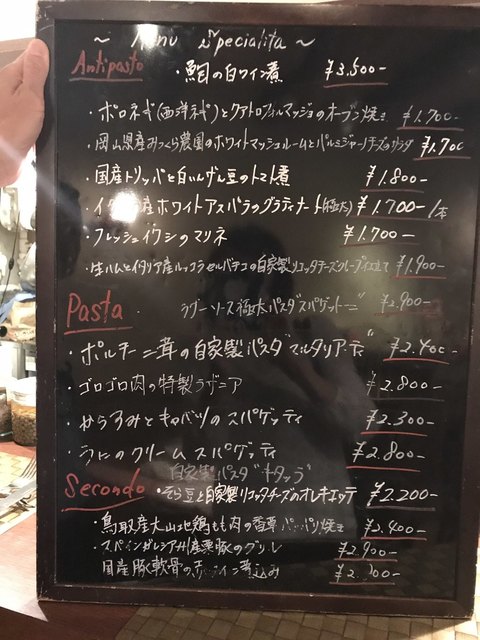 ~ Menu Specialita ~
Antipasto ・鯛の白ワイン煮 ¥3,500-
・ポロネギ(西洋ネギ)とクアトロフォルマッジョのオーブン焼き ¥1,700-
・岡山県産みつくら農園のホワイトマッシュルームとパルミジャーノチーズのサラダ ¥1,700
・国産トリッパと白いんげん豆のトマト煮 ¥1,800-
・イタリア産ホワイトアスパラのグラティナート(極太) ¥1,700-/本
・フレッシュイワシのマリネ ¥1,700-
・生ハムとイタリア産ルッコラセルバチコの自家製リコッタチーズクレープ仕立て ¥1,900-
Pasta ラグーソース極太パスタ"スパゲットーニ" ¥2,900-
・ポルチーニ茸の自家製パスタ"マルタリアーティ" ¥2,400-
・ゴロゴロ肉の特製ラザニア ¥2,800-
・からすみとキャベツのスパゲッティ ¥2,300-
・うにのクリームスパゲッティ ¥2,800-
自家製パスタ"キタッラ"
Secondo ・そら豆と自家製リコッタチーズのオレキエッテ ¥2,200-
・鳥取産大山地鶏もも肉の香草パン粉焼き ¥2,400-
・スペインガレシア州産栗豚のグリル ¥2,900-
国産豚軟骨の 煮込み